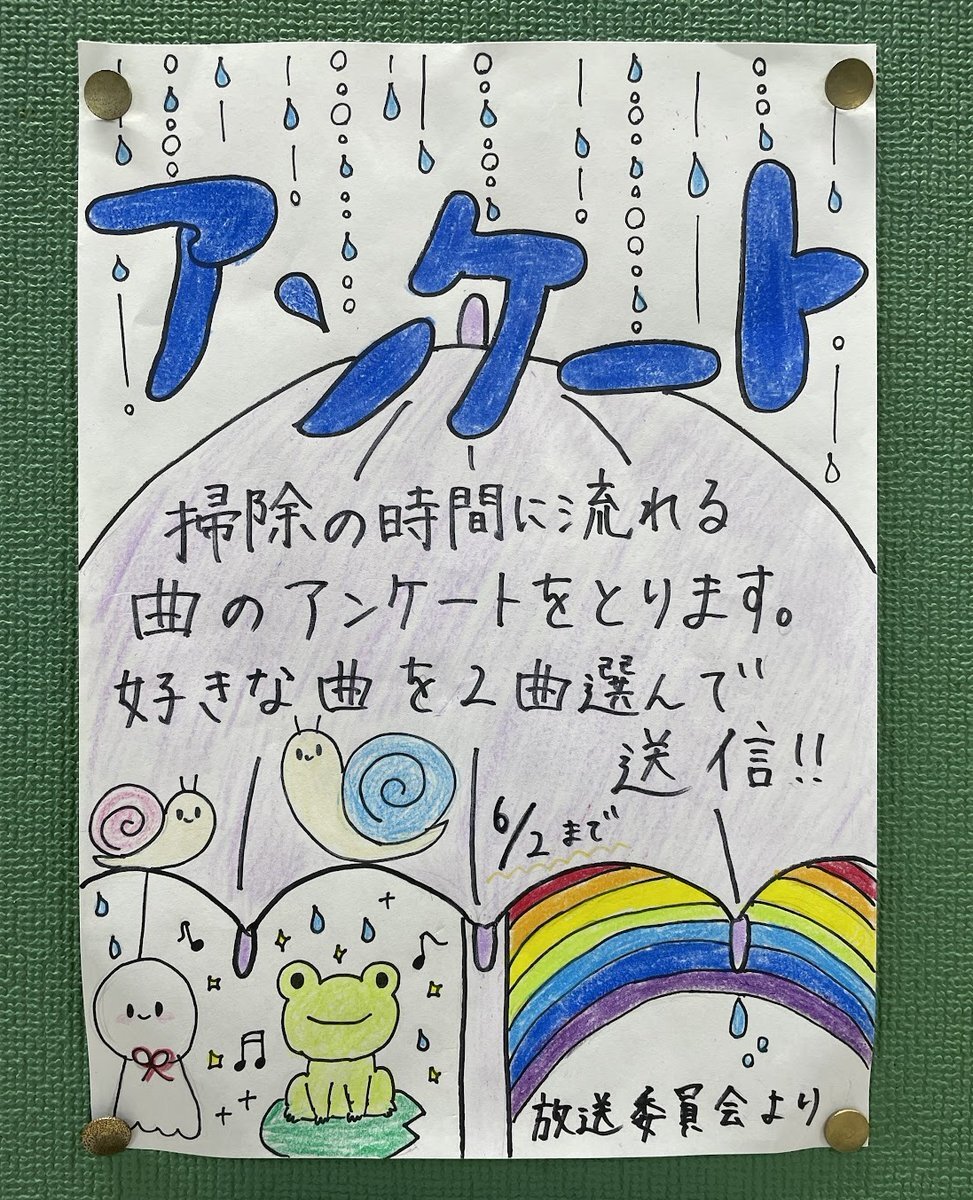 アンケート
掃除の時間に流れる
曲のアンケートをとります。
好きな曲を2曲選んで
送信!!
6/2まで
放送委員会より